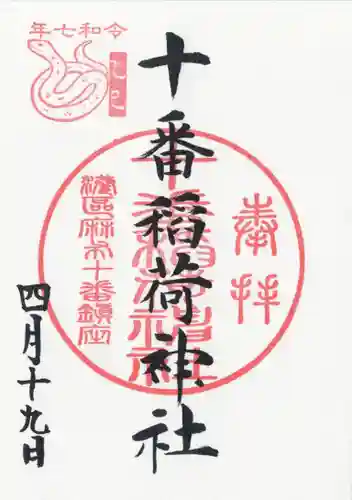 令和七年
乙巳
奉拝
十番稲荷神社
十番稲荷神社
港区麻布十番鎮座
四月十九日